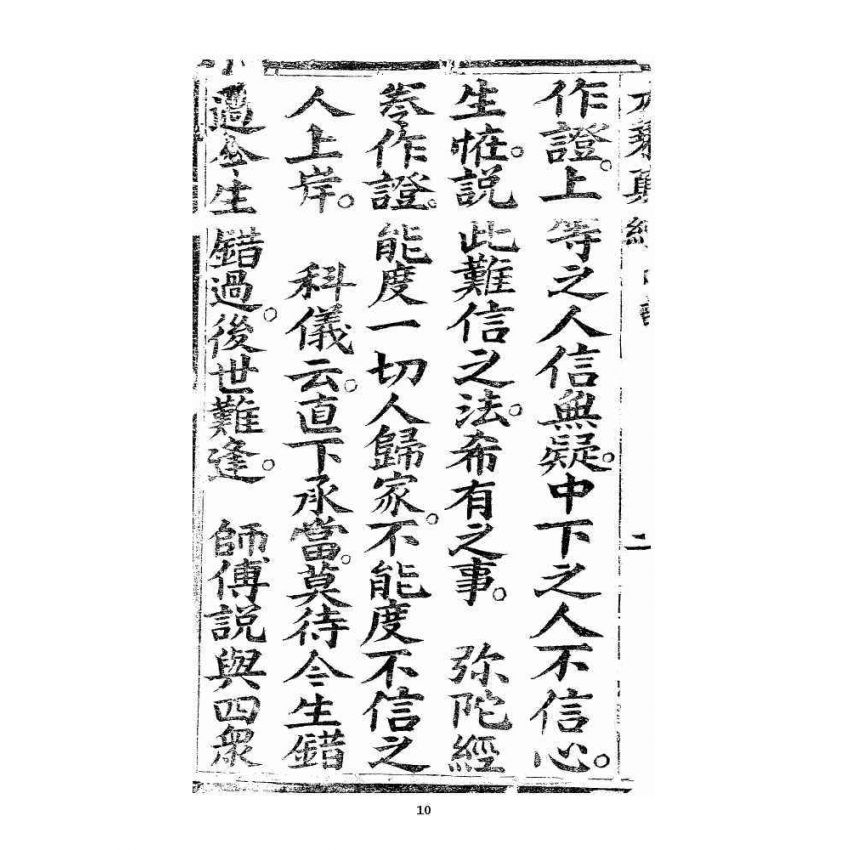 二
作證。上等之人信無疑。中下之人不信心。
生恠。說此難信之法。希有之事。 弥陀經
卷作證。能度一切人歸家。不能度不信之
人上岸。 科儀云。直下承當。莫待今生錯
過今生錯過。後世難逢。 師傅說與四眾
10